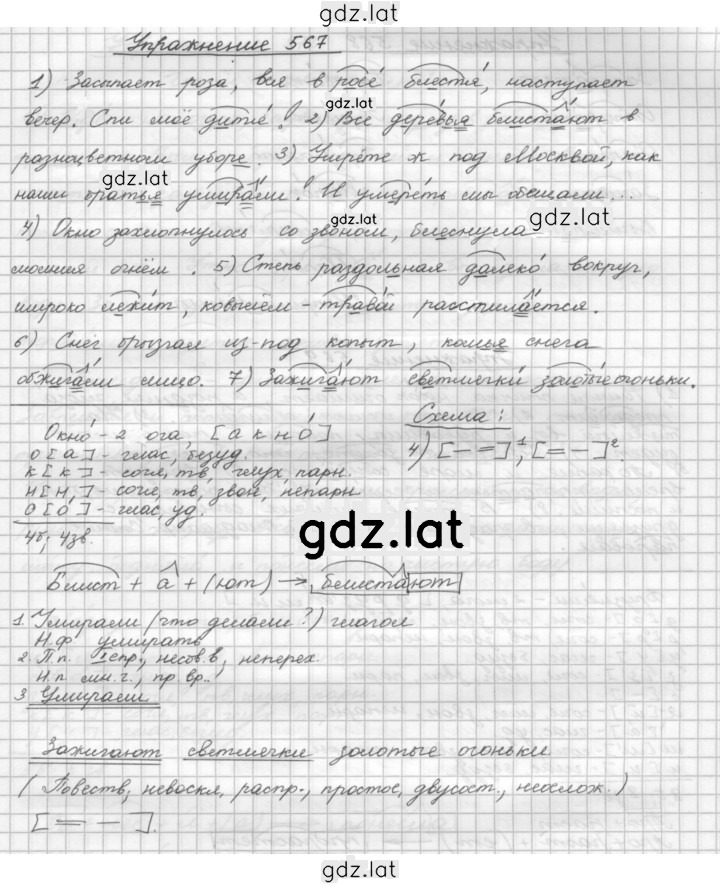 gdz.lat
Упражнение 567
gdz.lat
1) Засыпает роза, вся в росе блестя, наступает
gdz.lat
вечер. Спи моё дитя! 2) Все деревья блистают в
разноцветном уборе. 3) Умрёте ж под Москвой, как
gdz.lat
наши братья умирали! И умереть мы обещали...
gdz.lat
gdz.lat
4) Окно захлопнулось со звоном, блеснула
молния огнём. 5) Степь раздольная далеко вокруг,
широко лежит, ковылём-травой расстилается.
6) Снег брызгал из-под копыт, комья снега
обжигали лицо. 7) Зажигают светлячки золотые огоньки.
Окно - 2 [а к н о́]
о [а] - глас, безуд.
к [к] - согл, тв, глух, парн.
н [н] - согл, тв, звон, непарн
о [о́] - глас, уд.
4б; 4зв.
Схема:
4) [— =]¹, [= —]².
gdz.lat
Блист + а + (ют) → блистают
1. Умирали (что делали?) глагол
Н.ф умирать
2. П.п. I спр., несов.в, неперех.
Н.п мн.ч., пр.вр..
3. Умирали
Зажигают светлячки золотые огоньки
(Повеств, невоскл, распр., простое, двусост., неослож.)
[= —].
gdz.lat